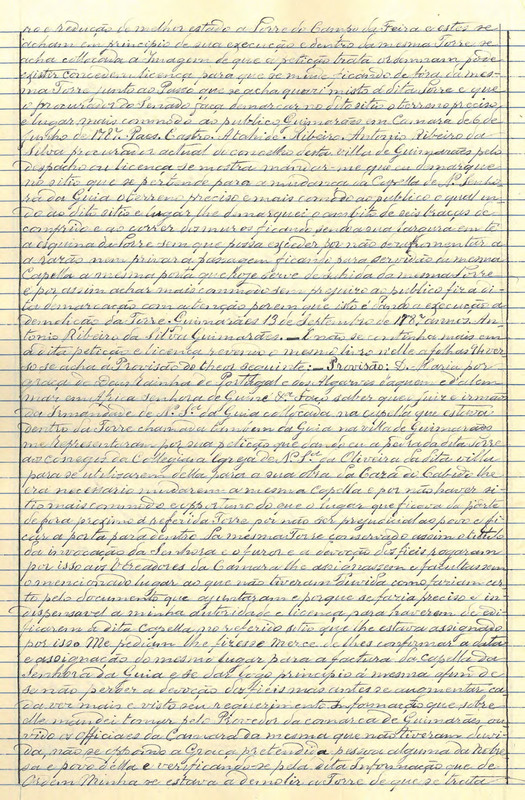 ro e redução de melhor estado a Torre do Campo da Feira e estes se
acham em principio de sua execução e dentro da mesma Torre se
acha collocada a Imagem de que a petição trata ordenaram pode
existir concedem licença para que se mude ficando de fora da mes-
ma Torre junto ao Passo que se acha quasi misto á dita Torre e que
o procurador do Senado faça demarcar no dito sitio o terreno preciso
e lugar mais commodo ao publico Guimarães em Camara de 6 de
Junho de 1787. Paes. Castro. Athaide. Ribeiro. Antonio Ribeiro da
Silva procurador actual do concelho esta villa de Guimarães pelo
despacho ou licença se mostra mandar-me que eu demarque
no sitio que se pertende para a mudança da Capella de N.ª Senho-
ra da Guia o terreno preciso e mais comodo ao publico o qual in-
do ao dito sitio e lugar lhe demarquei o ambito de seis braças de
comprido e ao correr dos muros ficando sendo a sua largura em te
a esquina da Torre sem que possa exceder por não
a razão nem privar a passagem ficando para servidão da mesma
Capella a mesma porta que hoje serve de subida da mesma Torre
e por assim achar mais commodo sem prejuizo ao publico fiz a di-
ta demarcação com attenção porem que isto é dando a execução a
demolição da Torre. Guimarães 13 de Septembro de 1787 annos. An-
tonio Ribeiro da Silva Guimarães. — E não se continha mais em
a dita petição e licença reverso o mesmo livro nelle a folhas 94 ver-
so se acha a Provisão do theor seguinte: — Provisão: D. Maria por
graça de Deus Rainha de Portugal e dos Algarves d'aquem e d'alem
mar em Africa senhora de Guiné &ª Faço saber que o juiz e irmãos
da Irmandade de N.ª S.ª da Guia collocada na capella que estava
dentro da Torre chamada tambem da Guia na villa de Guimarães
me representaram por sua petição que dando eu a pedra da dita Torre
aos conegos da Collegiada Igreja de N.ª S.ª da Oliveira da dita villa
para se utilizarem della para a sua obra da Caza do Cabido lhe
era necessario mudarem a mesma Capella e por não haver si-
tio mais commodo e proximo do que o lugar que ficava da parte
de fora proximo a referida Torre por não ser prejudicial ao povo e fi-
car a porta para dentro da mesma Torre conservado assim o titulo
da invocação da Senhora e o furor e a devoção dos fieis rogaram
por isso aos Vreadores da Camara lhe assignassem e facultassem
o mencionado lugar ao que não tiveram duvida como faziam cer-
to pelo documento que ajuntaram e porque se fazia preciso e in-
dispensavel a minha autoridade e licença para haverem de edi-
ficarem a dita Capella no referido sitio que lhe estava assignado
por isso Me pediam lhe fizesse merce de lhes confirmar a data
e assignação do mesmo lugar para a factura da capella da
Senhora da Guia e se dar logo principio á mesma afim de
se não perder a devoção dos fieis mas antes se augmentar ca-
da vez mais e visto seu requerimento Informação que sobre
elle mandei tomar pelo Provedor da comarca de Guimarães ou-
vindo os Officiaes da Camara da mesma que não tiveram duvi-
da, não se oppondo a Graça pretendida pessoa alguma da nobre-
sa e povo della e verificando-se pela dita Informação que de
Ordem Minha se estava a demolir a Torre de que se trata